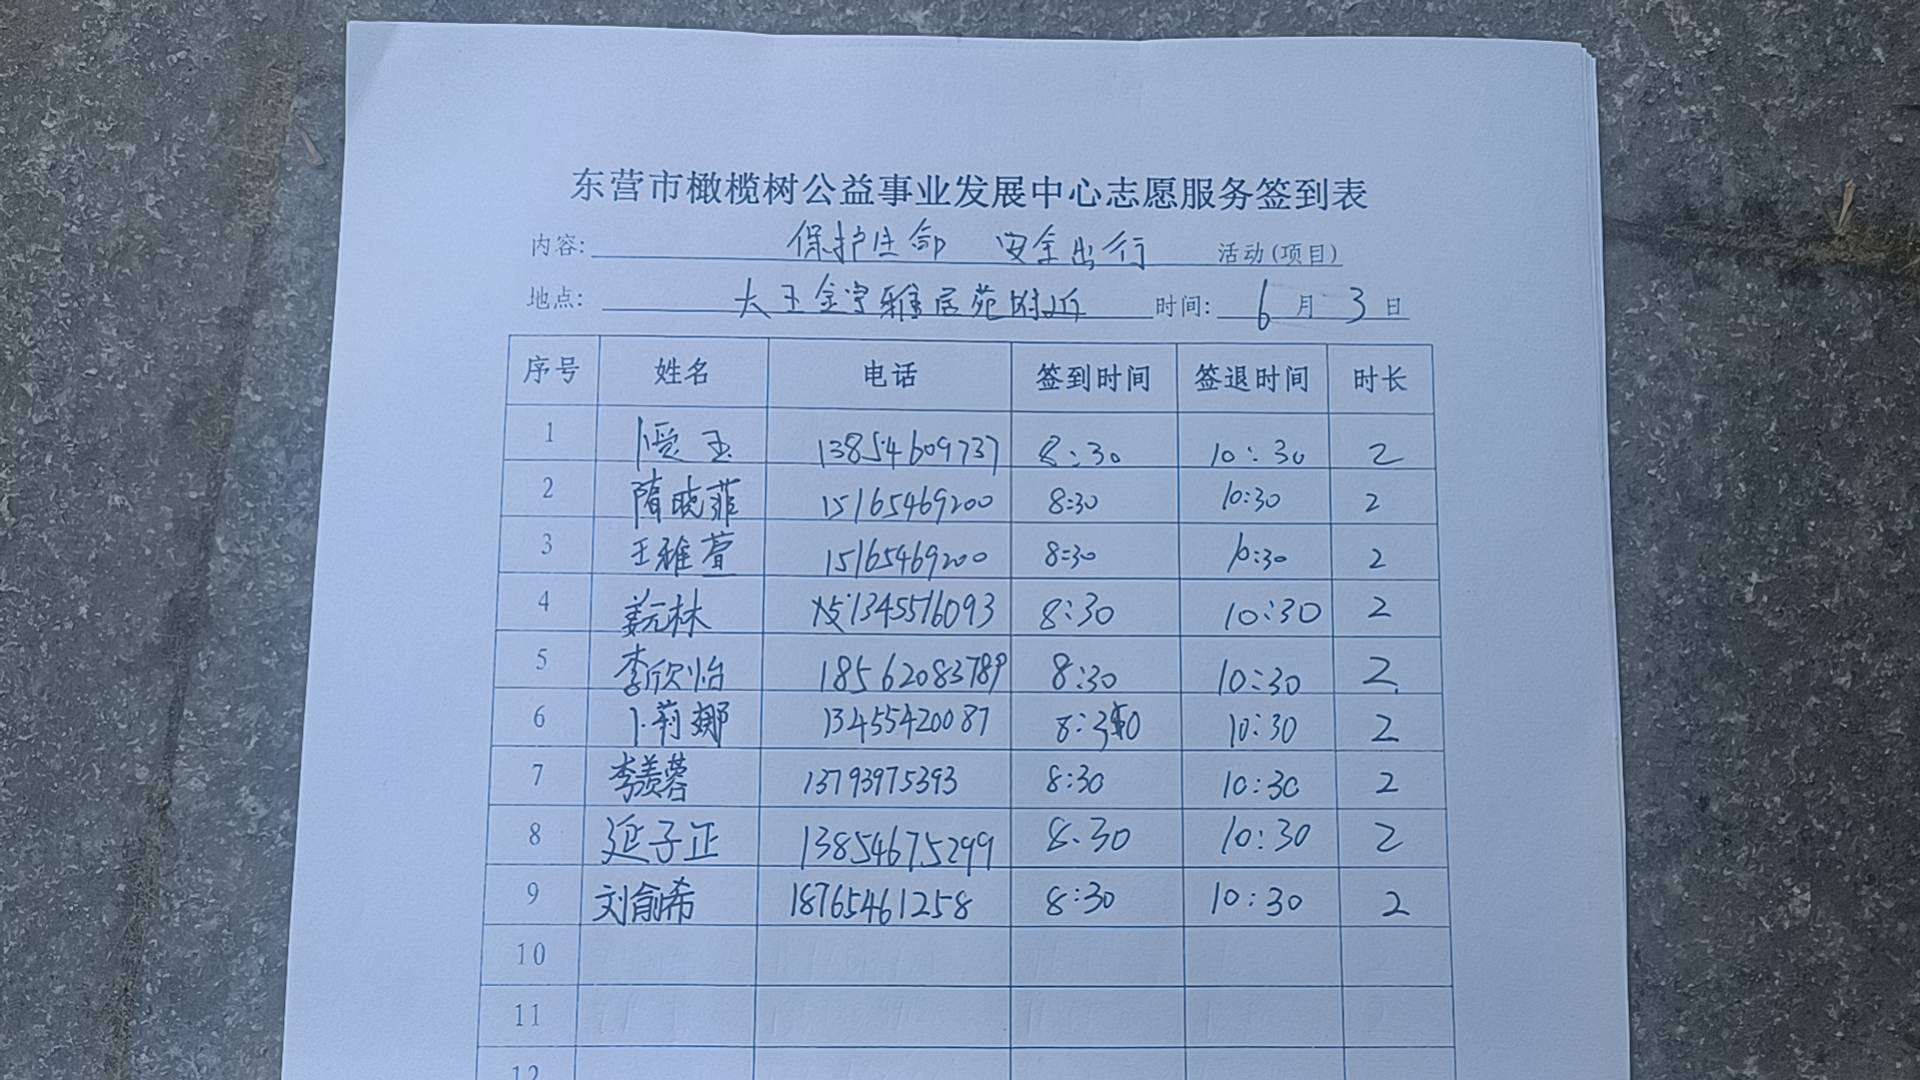 东营市橄榄树公益事业发展中心志愿服务签到表
内容: 保护生命 安全出行 活动(项目)
地点: 大王金宇雅居苑附近 时间: 6 月 3 日
序号 姓名 电话 签到时间 签退时间 时长
1 卜爱玉 13854609737 8:30 10:30 2
2 隋晓菲 15165469200 8:30 10:30 2
3 王雅萱 15165469200 8:30 10:30 2
4 姜元林 13455716093 8:30 10:30 2
5 李欣怡 18562083789 8:30 10:30 2
6 卜莉娜 13455420087 8:30 10:30 2
7 李羡蓉 13793975393 8:30 10:30 2
8 延子正 13854675299 8:30 10:30 2
9 刘俞希 18765461258 8:30 10:30 2
10
11
12